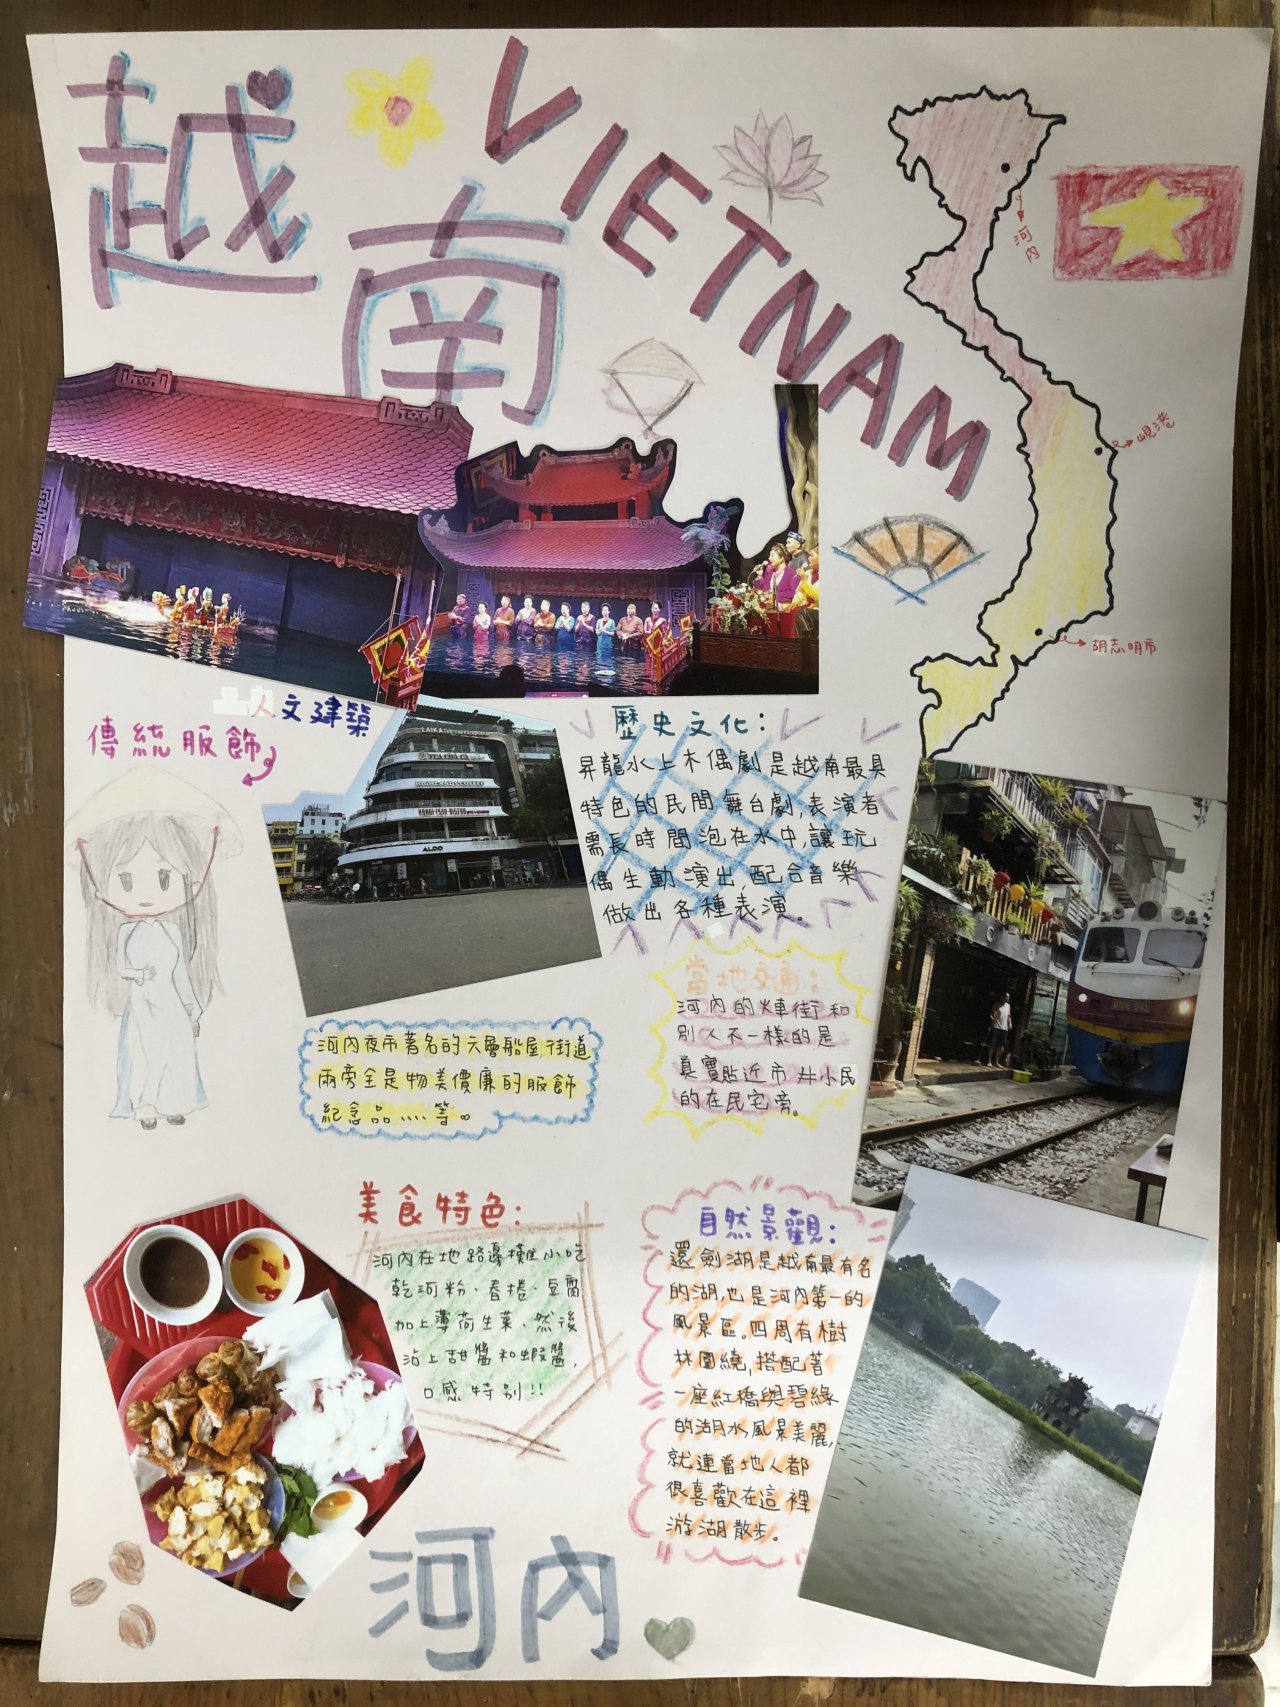 越南
VIETNAM
河內
峴港
胡志明市
人文建築
傳統服飾
LAIKA
HIGHLANDS COFFEE
ALDO
歷史文化：
昇龍水上木偶劇是越南最具
特色的民間舞台劇，表演者
需長時間泡在水中，讓玩
偶生動演出，配合音樂
做出各種表演。
當地交通：
河內的火車街和
別人不一樣的是
真實貼近市井小民
的在民宅旁。
河內夜市著名的六層船屋，街道
兩旁全是物美價廉的服飾
紀念品……等。
美食特色：
河內在地路邊攤小吃
乾河粉、春捲、豆腐
加上薄荷生菜、然後
沾上甜醬和蝦醬，
口感特別!!
自然景觀：
還劍湖是越南最有名
的湖，也是河內第一的
風景區。四周有樹
林圍繞，搭配著
一座紅橋與碧綠
的湖水風景美麗，
就連當地人都
很喜歡在這裡
游湖散步。
河內